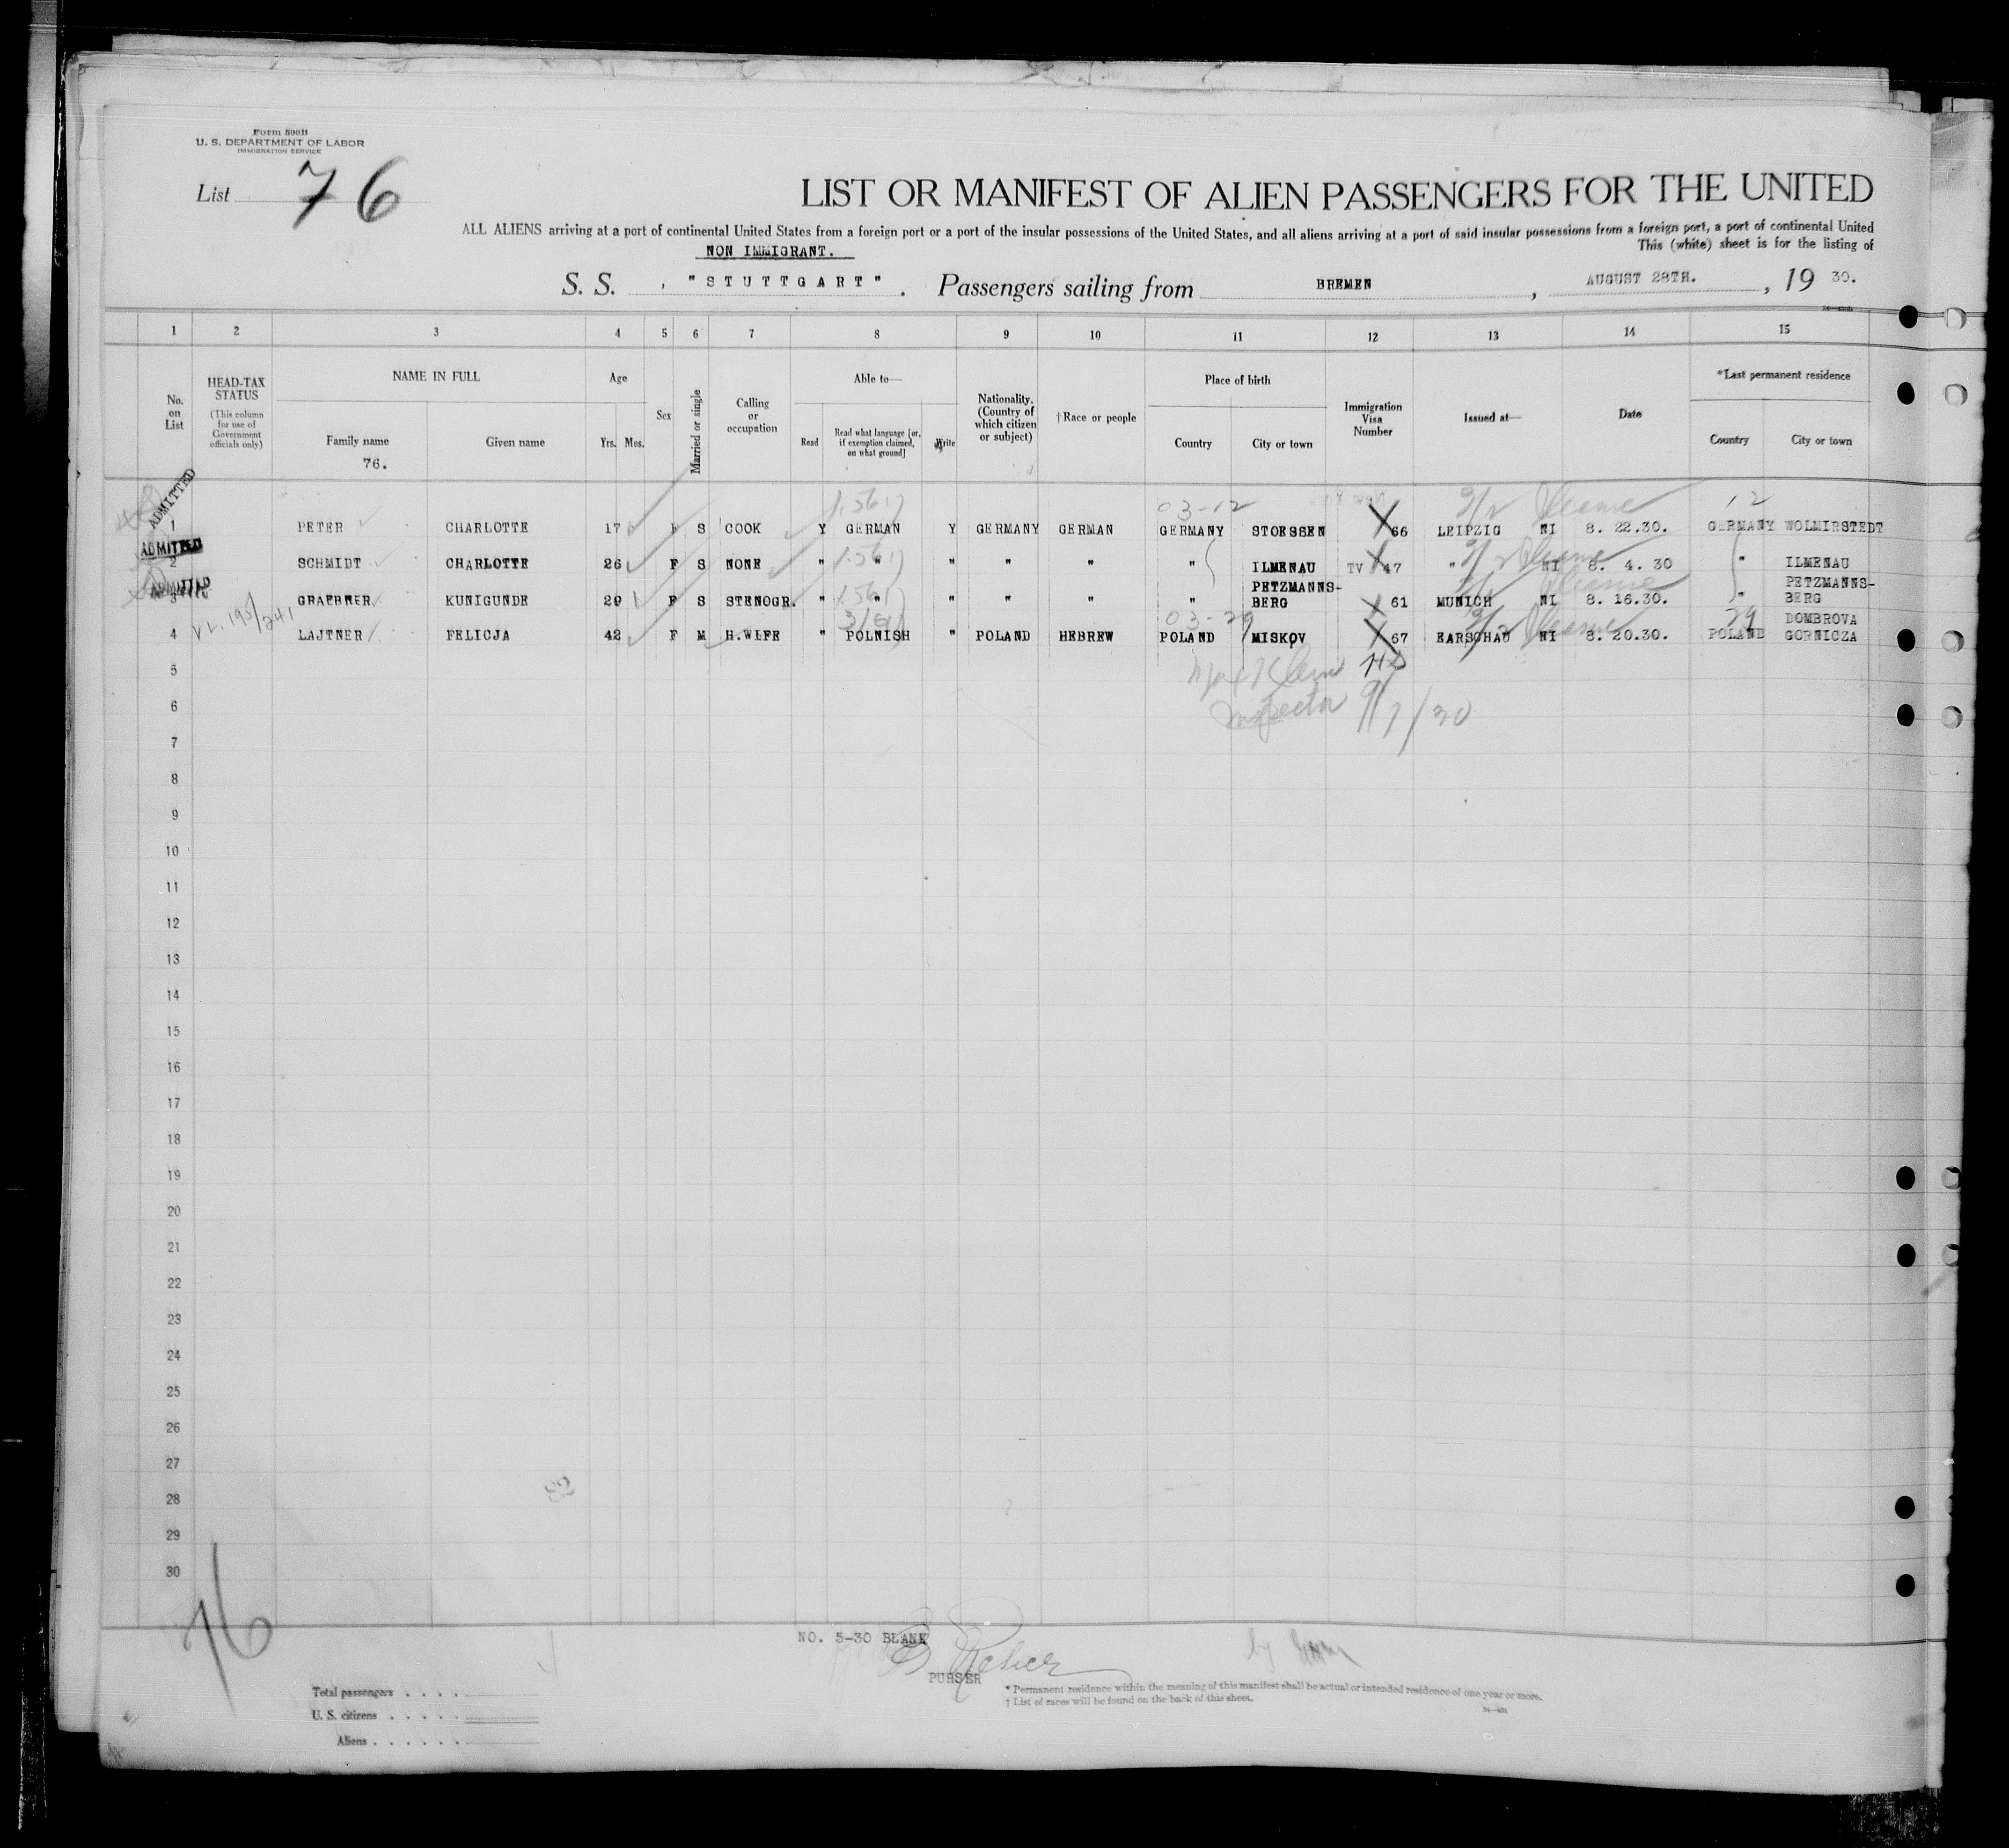 Form 500B
U. S. DEPARTMENT OF LABOR
IMMIGRATION SERVICE
List 76
LIST OR MANIFEST OF ALIEN PASSENGERS FOR THE UNITED
ALL ALIENS arriving at a port of continental United States from a foreign port or a port of the insular possessions of the United States, and all aliens arriving at a port of said insular possessions from a foreign port, a port of continental United
This (white) sheet is for the listing of
NON IMMIGRANT.
S. S. "STUTTGART". Passengers sailing from BREMEN, AUGUST 28TH., 19 30.
1 2 3 4 5 6 7 8 9 10 11 12 13 14 15
No. on List
HEAD-TAX STATUS (This column for use of Government officials only)
NAME IN FULL
Family name
Given name
76.
Age
Yrs. Mos.
Sex
Married or single
Calling or occupation
Able to—
Read
Read what language [or, if exemption claimed, on what ground]
Write
Nationality. (Country of which citizen or subject)
†Race or people
Place of birth
Country
City or town
Immigration Visa Number
Issued at—
Date
*Last permanent residence
Country
City or town
ADMITTED
03-12
12
1 PETER CHARLOTTE 17 F S COOK Y GERMAN Y GERMANY GERMAN GERMANY STOESSEN 66 LEIPZIG NI 8. 22.30. GERMANY WOLMIRSTEDT
ADMITTED
2 SCHMIDT CHARLOTTE 26 F S NONE " " " " " " ILMENAU TV 47 " NI 8. 4. 30 " ILMENAU
ADMITTED
3 GRAEBNER KUNIGUNDE 29 F S STENOGR. " " " " " " PETZMANNS-BERG 61 MUNICH NI 8. 16.30. " PETZMANNS-BERG
03-29
29
4 LAJTNER FELICJA 42 F M H.WIFE " POLNISH " POLAND HEBREW POLAND MISKOV 67 EARSCHAU NI 8. 20.30. POLAND DOMBROVA GORNICZA
5
Inspector 9/7/30
6
7
8
9
10
11
12
13
14
15
16
17
18
19
20
21
22
23
24
25
26
27
28
29
30
76
NO. 5-30 BLANK
PURSER
Total passengers . . . .
U. S. citizens . . . . .
Aliens . . . . . .
* Permanent residence within the meaning of this manifest shall be actual or intended residence of one year or more.
† List of races will be found on the back of this sheet.